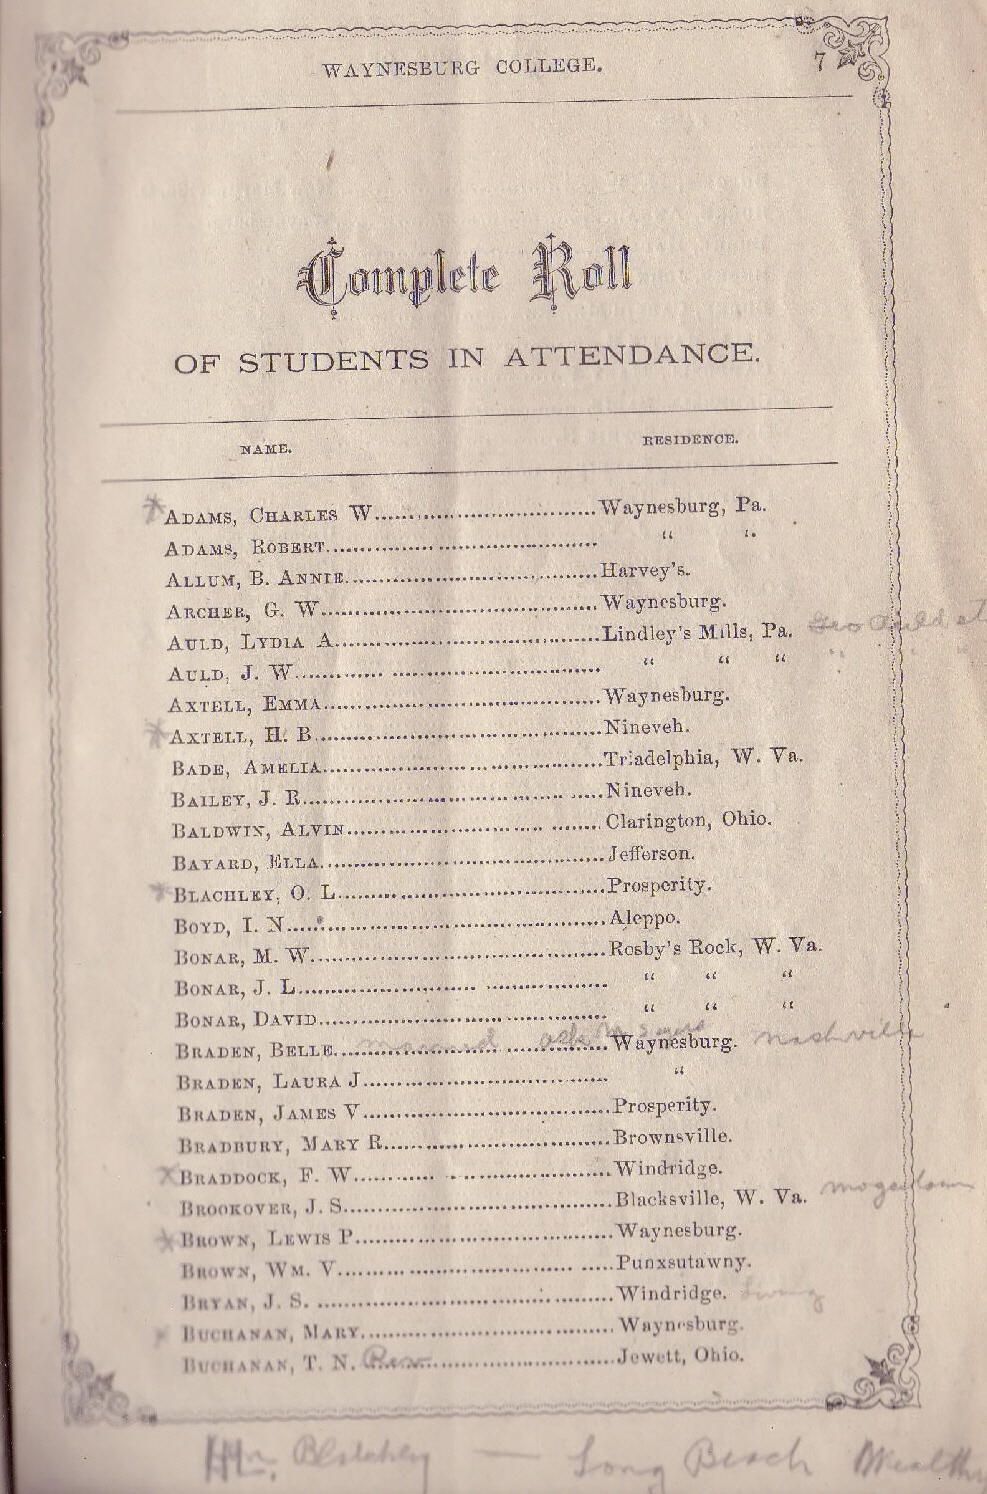 WAYNESBURG COLLEGE. 7
Complete Roll
OF STUDENTS IN ATTENDANCE.
NAME. RESIDENCE.
ADAMS, CHARLES W. Waynesburg, Pa.
ADAMS, ROBERT. “ “
ALLUM, B. ANNIE. Harvey's.
ARCHER, G. W. Waynesburg.
AULD, LYDIA A. Lindley's Mills, Pa. Geo Auld
AULD, J. W. “ “ “ “ “ “
AXTELL, EMMA. Waynesburg.
AXTELL, H. B. Nineveh.
BADE, AMELIA. Triadelphia, W. Va.
BAILEY, J. R. Nineveh.
BALDWIN, ALVIN. Clarington, Ohio.
BAYARD, ELLA. Jefferson.
BLACHLEY, O. L. Prosperity.
BOYD, I. N. Aleppo.
BONAR, M. W. Rosby's Rock, W. Va.
BONAR, J. L. “ “ “
BONAR, DAVID. “ “ “
BRADEN, BELLE. married Waynesburg. Nashville
BRADEN, LAURA J. “
BRADEN, JAMES V. Prosperity.
BRADBURY, MARY R. Brownsville.
BRADDOCK, F. W. Windridge.
BROOKOVER, J. S. Blacksville, W. Va.
BROWN, LEWIS P. Waynesburg.
BROWN, WM. V. Punxsutawny.
BRYAN, J. S. Windridge. Living
BUCHANAN, MARY. Waynesburg.
BUCHANAN, T. N. Rev. Jewett, Ohio.
Blachley — Long Beach Wealthy